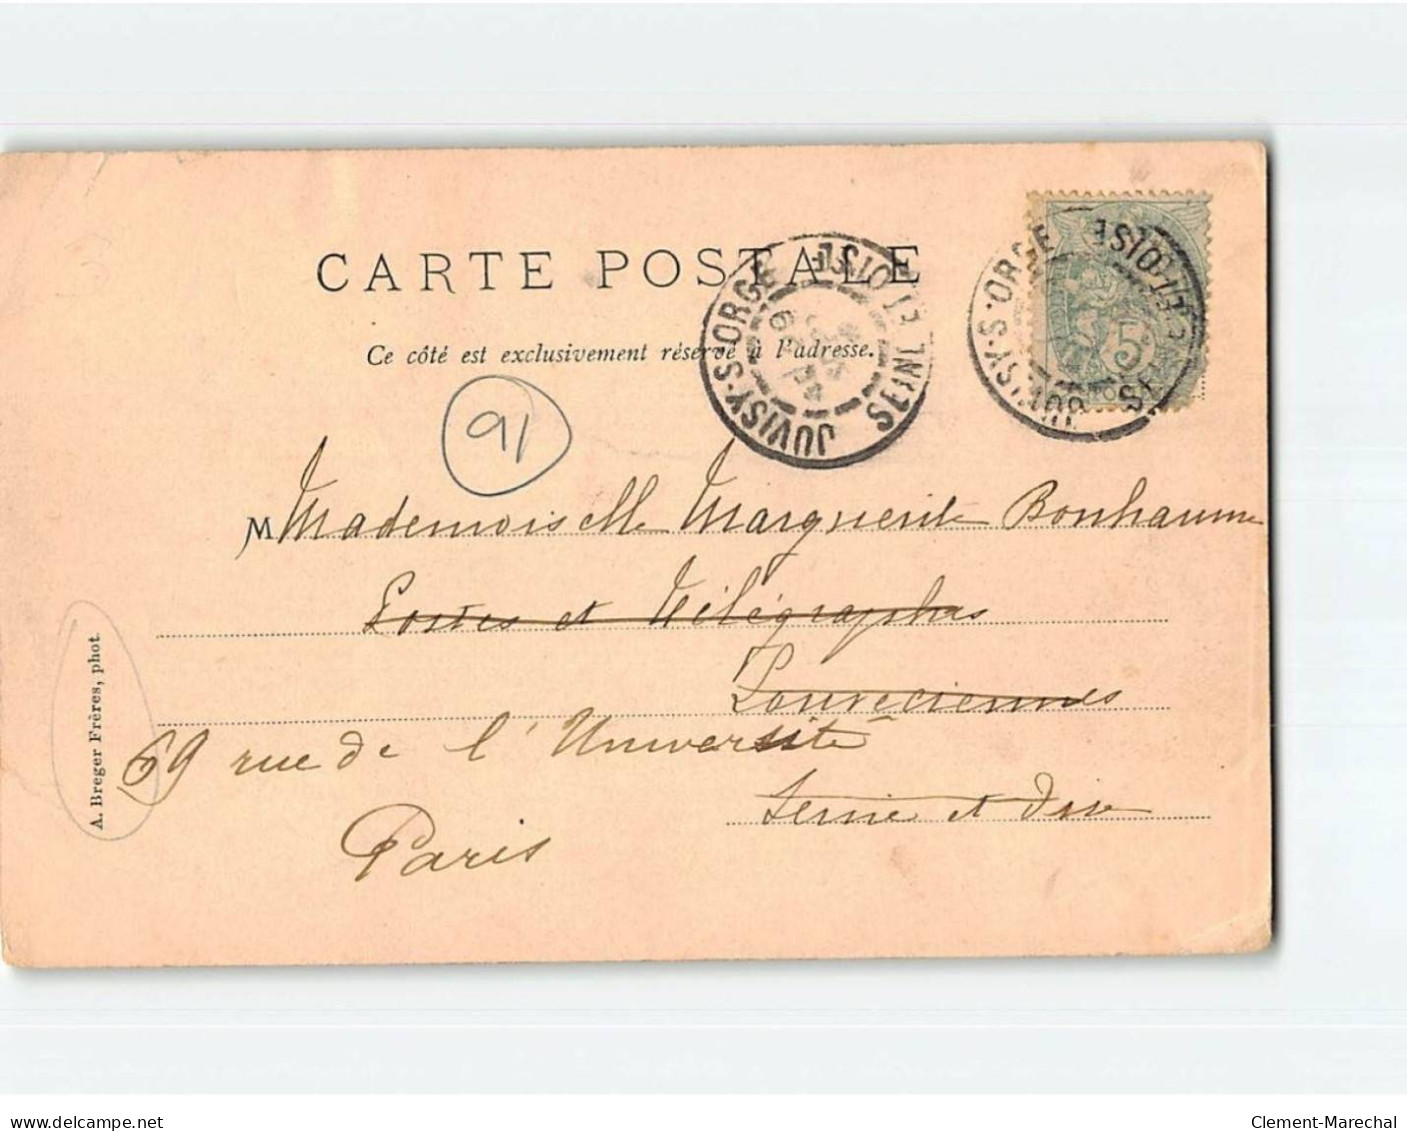 CARTE POSTALE
Ce côté est exclusivement réservé à l'adresse.
JUVISY-S-ORGE SEINE ET OISE
JUVISY-S-ORGE SEINE ET OISE
5
91
M Mademoiselle Marguerite Bonhaume
Postes et Télégraphes
Louveciennes
69 rue de l'Université
Seine et Oise
Paris
A. Breger Frères, phot.
delcampe.net
Clement-Marechal